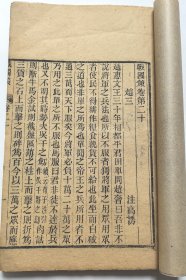 戰國策卷第二十
趙三
高誘注
趙惠文王三十年相都平君田單問趙奢曰吾非不說
將軍之兵法也所以不服者獨將軍之用眾用眾
者使民不得耕作糧食輓賃不可給也此坐而自破
之道也非單之所為也單聞之帝王之兵所用者不
過三萬而天下服矣今將軍必負十萬二十萬之眾
乃用之此單之所不服也馬服曰君非徒不達於兵
也又不明其時勢夫吳干之劍肉試
則斷牛馬金試則截盤匜薄之柱上而擊之則折為
三質之石上而擊之則碎為百今以三萬之眾而應